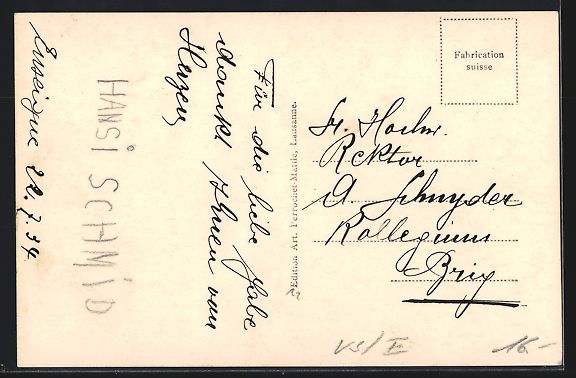 Für die liebe Gabe
dankt Ihnen von
Herzen
HANSi SCHMiD
Enseigne 22.7.34
Edition Art. Perrochet-Matile, Lausanne.
Fabrication
suisse
Sr. Hochw.
Rektor
A Schnyder
Kollegium
Brig
VS/E
16.-